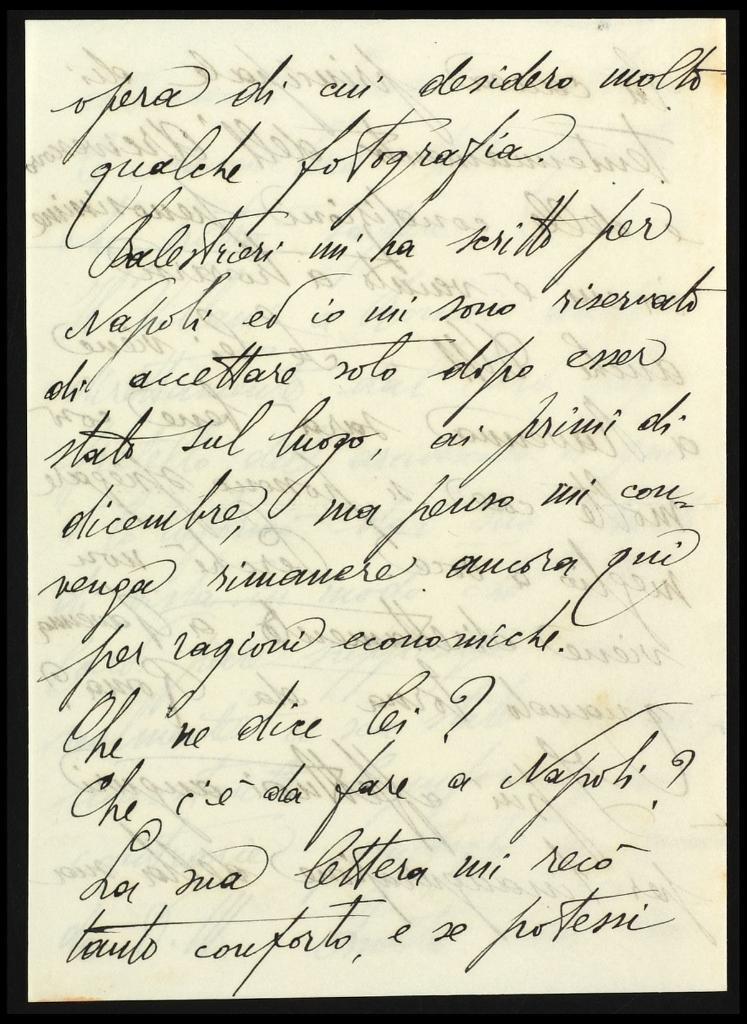 opera di cui desidero molto
qualche fotografia.
Balestrieri mi ha scritto per
Napoli ed io mi sono riservato
di accettare solo dopo esser
stato sul luogo, ai primi di
dicembre, ma penso mi con-
venga rimanere ancora qui
per ragioni economiche.
Che ne dice lei?
Che c'è da fare a Napoli?
La sua lettera mi recò
tanto conforto, e se potessi